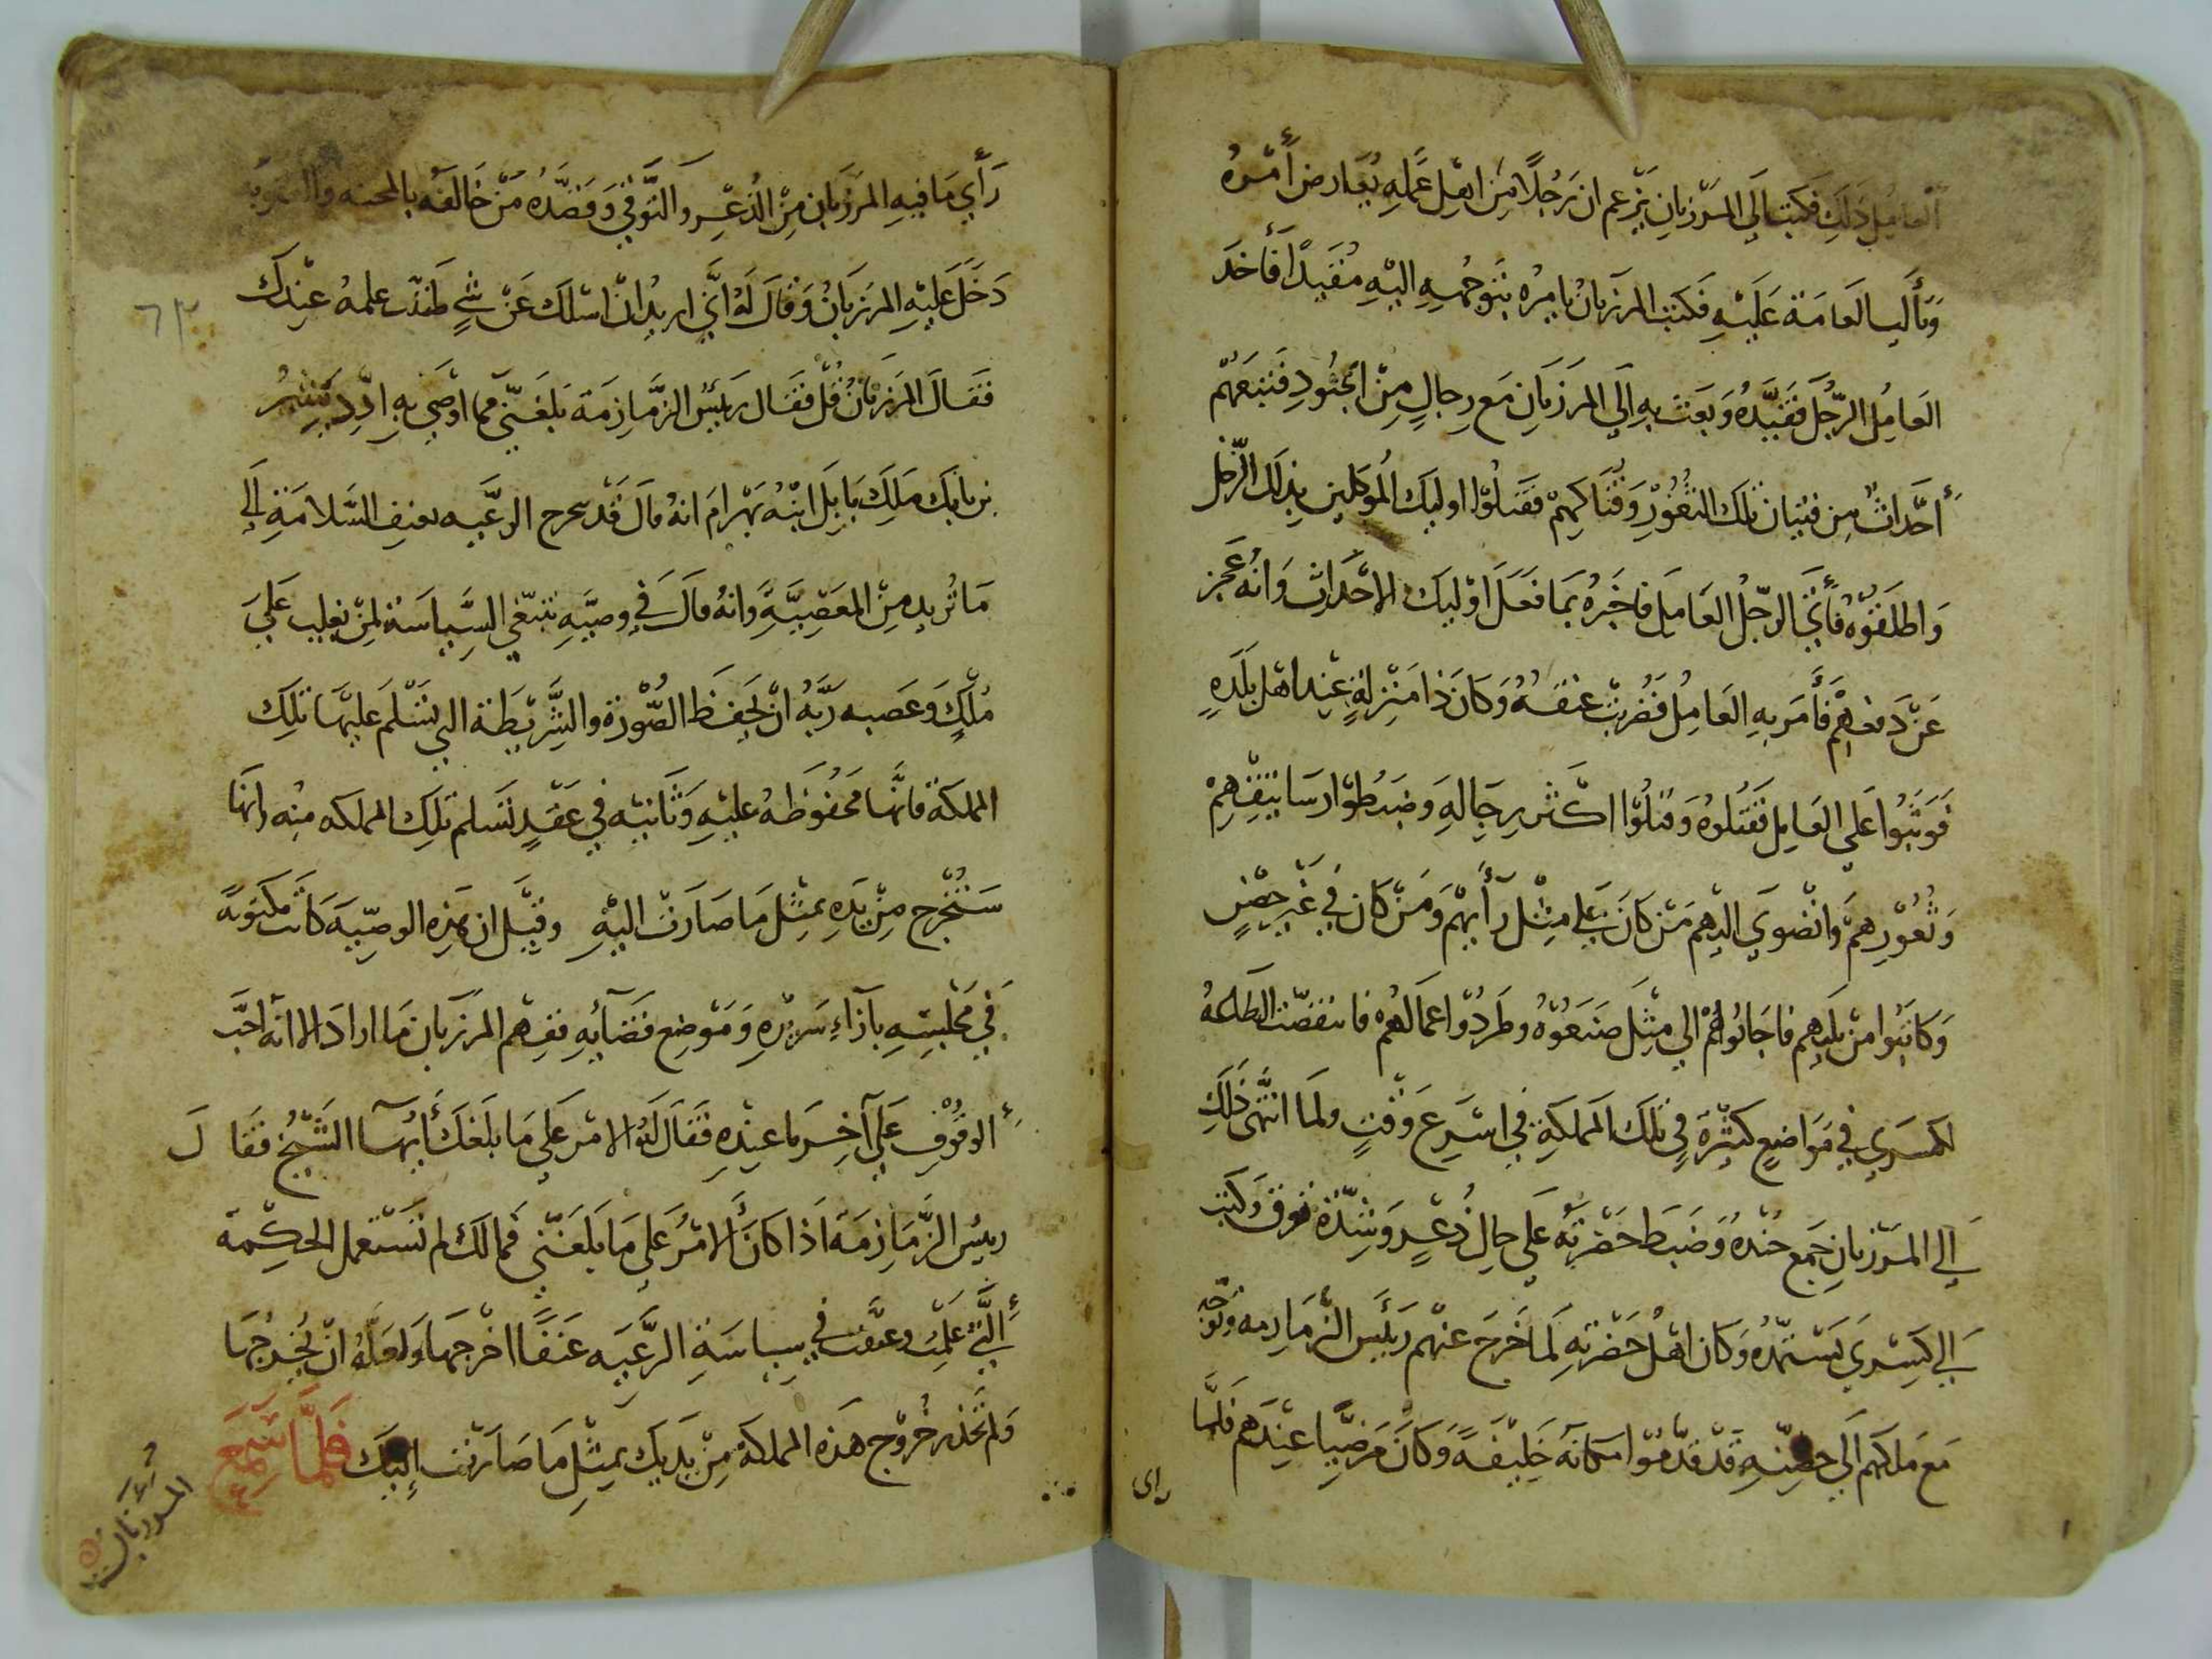 العامل ذلك فكتب الي المرزبان يزعم ان رجلا من اهل عمله يعارض أمره
ويألب العامة عليه فكتب المرزبان يامره بتوجهه اليه مقيدا فأخذ
العامل الرجل فقيده وبعث به الي المرزبان مع رجال من الجنود فتبعهم
أحداث من فتيان تلك الثغور وفتاكهم فقتلوا اوليك الموكلين بذلك الرجل
واطلقوه فأتي الرجل العامل فاخبره بما فعل اوليك الاحداث وانه عجز
عن دفعهم فأمر به العامل فضربت عنقه وكان ذا منزلة عند اهل بلده
فوثبوا علي العامل فقتلوه وقتلوا اكثر رجاله وضبطوا رساتيقهم
وثغورهم وانضوي اليهم من كان علي مثل رأيهم ومن كان في غير حصن
وكاتبوا من يليهم فاجابوهم الي مثل صنعوه وطردوا عمالهم فانتقضت الطاعة
لكسري في مواضع كثيرة في تلك المملكة في اسرع وقت ولما انتهي ذلك
الي المرزبان جمع جنده وضبط حضرته علي حال ذعر وشدة توق وكتب
الي كسري يستمده وكان اهل حضرته لما خرج عنهم رييس الزمازمه وتوجه
مع ملكهم الي حصنه قد قدموا مكانه خليفة وكان مرضيا عندهم فلما
راى
رأي ما فيه المرزبان من الذعر والتوقي وقصده من خالفه بالمحنه والعقوبة
دخل عليه المرزبان وقال له اني اريد ان اسلك عن شي ظننت علمه عندك
فقال المرزبان قل فقال رييس الزمازمة بلغني مما اوصي به ازدشير
بن بابك ملك بابل ابنه بهرام انه قال قد تحرج الرعيه بعنف السلامة الي
ما تريد من المعصية وانه قال في وصيه تنبغي السياسة لمن يغلب علي
ملك وعصبه ربه ان يحفظ الصورة والشريطة التي تسلم عليها تلك
المملكة فانها محفوظه عليه وثانيه في عقد تسلم تلك المملكه منه وانها
ستخرج من يده بمثل ما صارت اليه وقيل ان هذه الوصيه كانت مكتوبة
في مجلسه بآزاء سريره وموضع قضآيه ففهم المرزبان ما اراد الا انه احب
الوقوف علي آخر ما عنده فقال له الامر علي ما بلغك أيها الشيخ فقال
رييس الزمازمة اذا كان الامر علي ما بلغني فما لك لم تستعمل الحكمة
التي علمت وعنفت في سياسة الرعيه عنفا اخرجها ولعله ان يخرجها
ولم تحذر خروج هذه المملكة من يديك بمثل ما صارت إليك فلما سمع
المرزبان